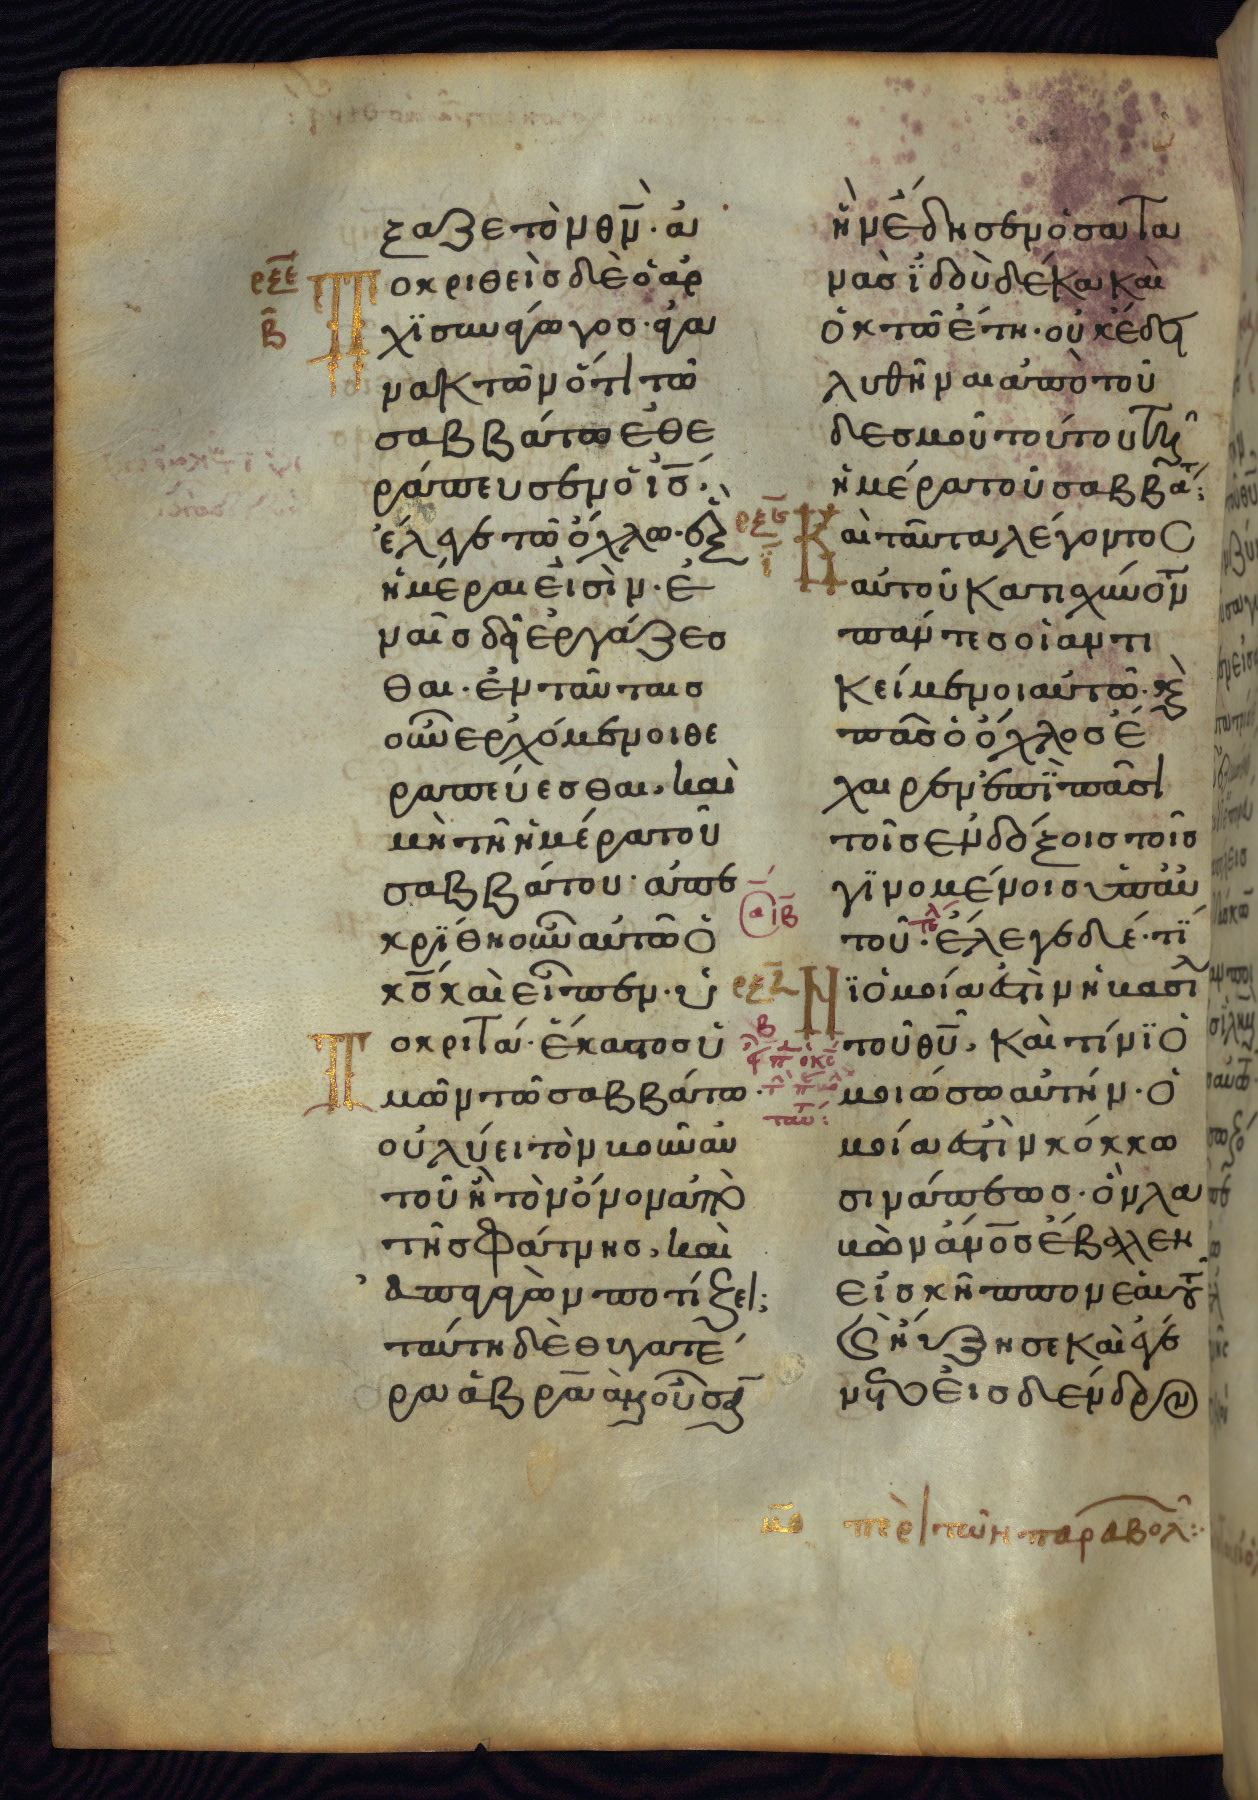 ξαζε τὸν θν̄· ἀ
ρξε̄
β̄
Ποκριθεὶς δὲ ὁ ἀρ
χϊσυνάγωγος· ἀγα
νακτῶν ὅτι τῶ
σαββάτω ἐθε
ράπευσεν ὁ ῑς·
ἔλεγε τῶ ὄχλω· ἓξ
ἡμέραι εἰσὶν· ἐ
ν αἷς δεῖ ἐργάζεσ
θαι· ἐν ταύταις
οὖν ἐρχόμενοι θε
ραπεύεσθαι, καὶ
μὴ τῆ ἡμέρα τοῦ
σαββάτου· ἀπε
κρίθη οὖν αὐτῶ ὁ
κ̄ς καὶ εἶπεν· ὑ
Ποκριταί· ἕκαστος ὑ
μῶν τῶ σαββάτω·
οὐ λύει τὸν βοῦν αὐ
τοῦ ἢ τὸν ὄνον ἀπὸ
τῆς φάτνης, καὶ
ἀπαγαγὼν ποτίζει;
ταύτην δὲ θυγατέ
ρα ἀβραὰμ οὖσαν
ἣν ἔδησεν ὁ σατα
νᾶς ϊδοὺ δέκα καὶ
ὀκτῶ ἔτη· οὐκ ἔδει
λυθῆναι ἀπὸ τοῦ
δεσμοῦ τούτου τῆ
ἡμέρα τοῦ σαββάτ;
ρξς̄
ῑ
Καὶ ταῦτα λέγοντος
αὐτοῦ κατησχύνοντο
πάντες οἱ ἀντι
κείμενοι αὐτῶ· κ
πᾶς ὁ ὄχλος ἔ
χαιρεν ἐπῒ πᾶσι
τοῖς ἐνδόξοις τοῖς
γϊνομένοις ὑπ' αὐ
τοῦ· ἔλεγε δέ· τί
ρξζ̄
Νϊ ὁμοία ἐστὶν ἡ βασιλ
τοῦ θῡ, καὶ τίνϊ ὁ
μοιώσω αὐτήν· ὁ
μοία ἐστὶν κόκκω
σινάπεως· ὃν λα
βὼν ἄν̄ος ἔβαλεν
εἰς κῆπον ἑαυτοῦ
καὶ ηὔξησε καὶ ἐγέ
νετο εἰς δένδρον
περὶ τῶν παραβολ: